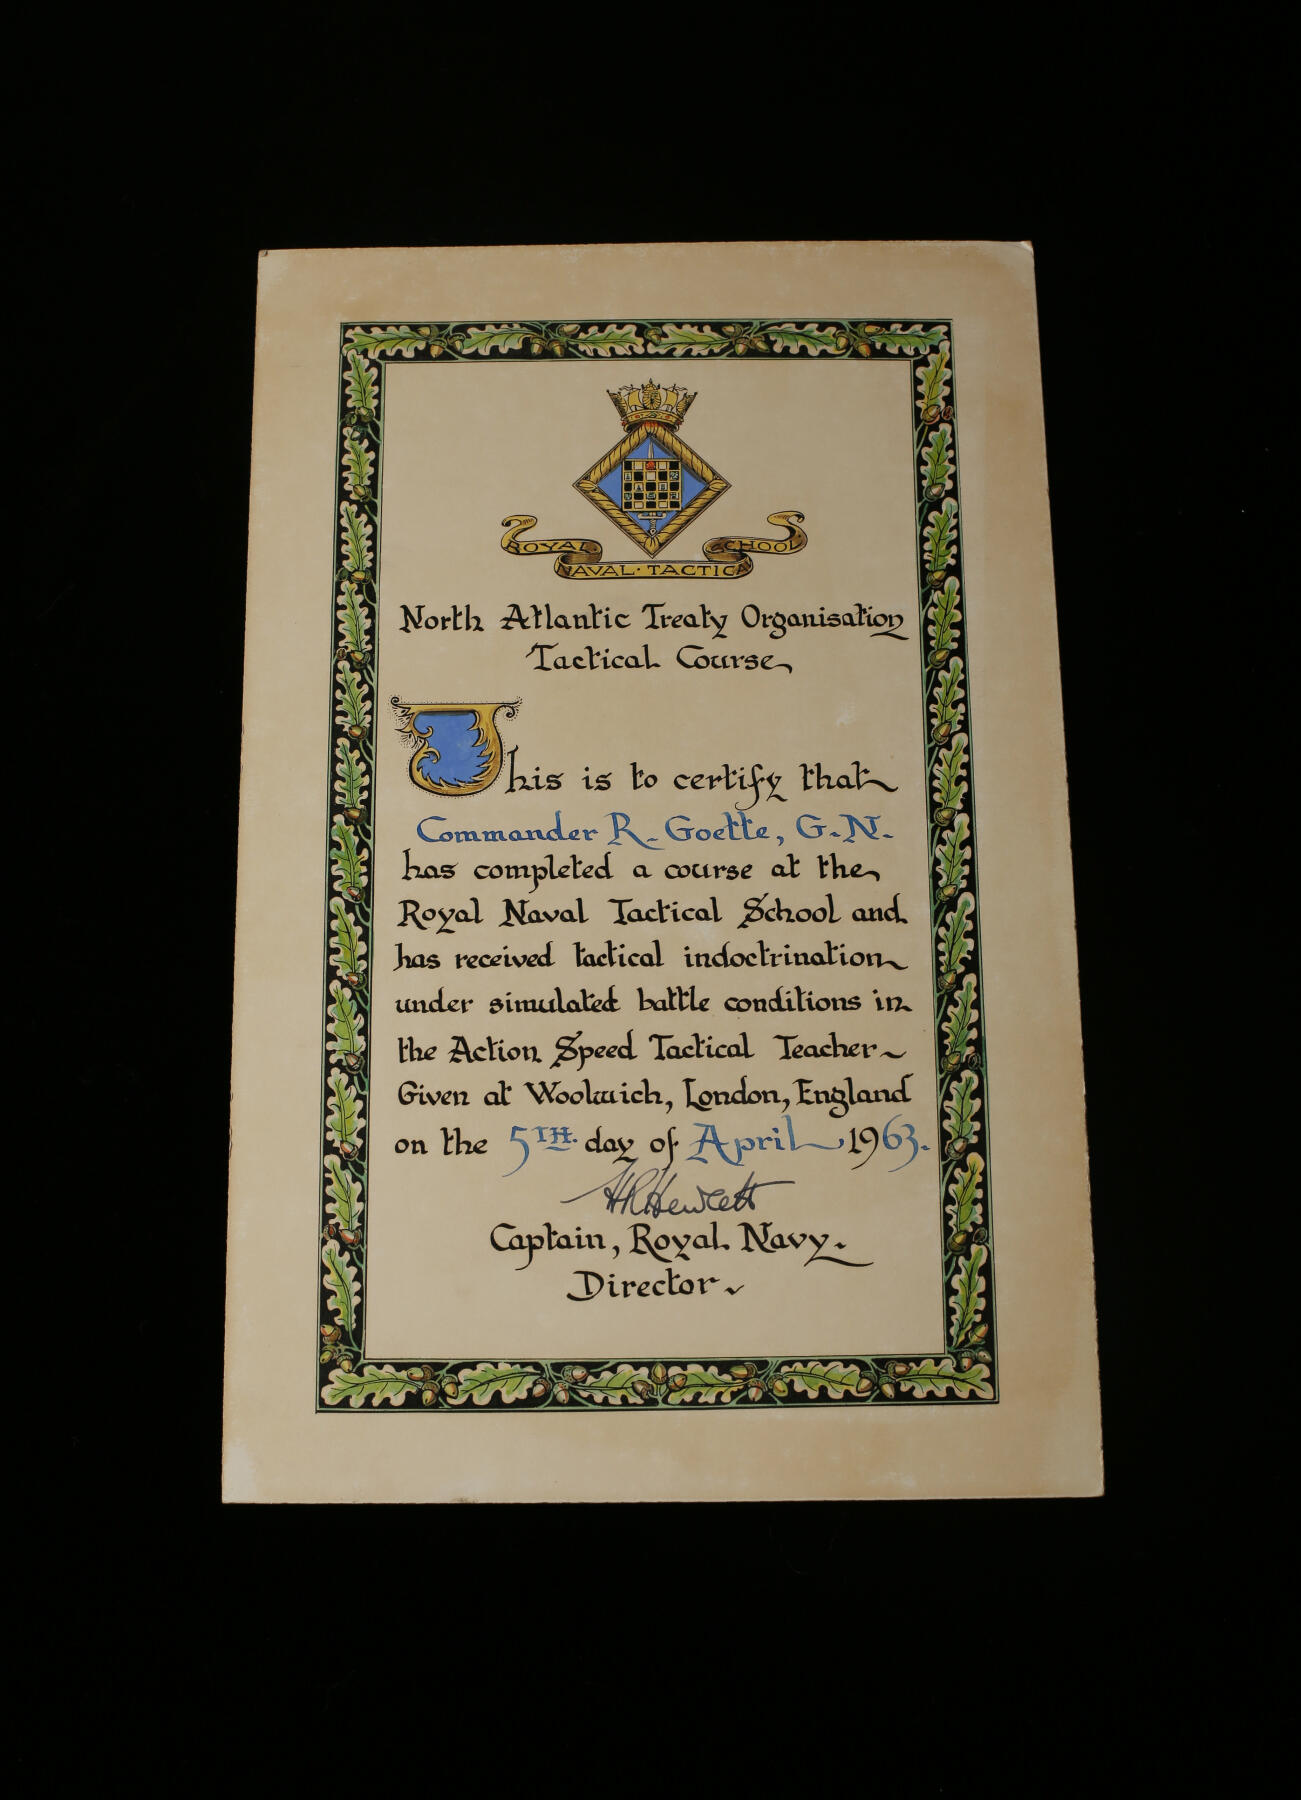 ROYAL NAVAL · TACTICAL SCHOOL
North Atlantic Treaty Organisation
Tactical Course
This is to certify that
Commander R. Goette, G.N.
has completed a course at the
Royal Naval Tactical School and
has received tactical indoctrination
under simulated battle conditions in
the Action Speed Tactical Teacher
Given at Woolwich, London, England
on the 5TH. day of April 1963.
HRHewlett
Captain, Royal Navy.
Director